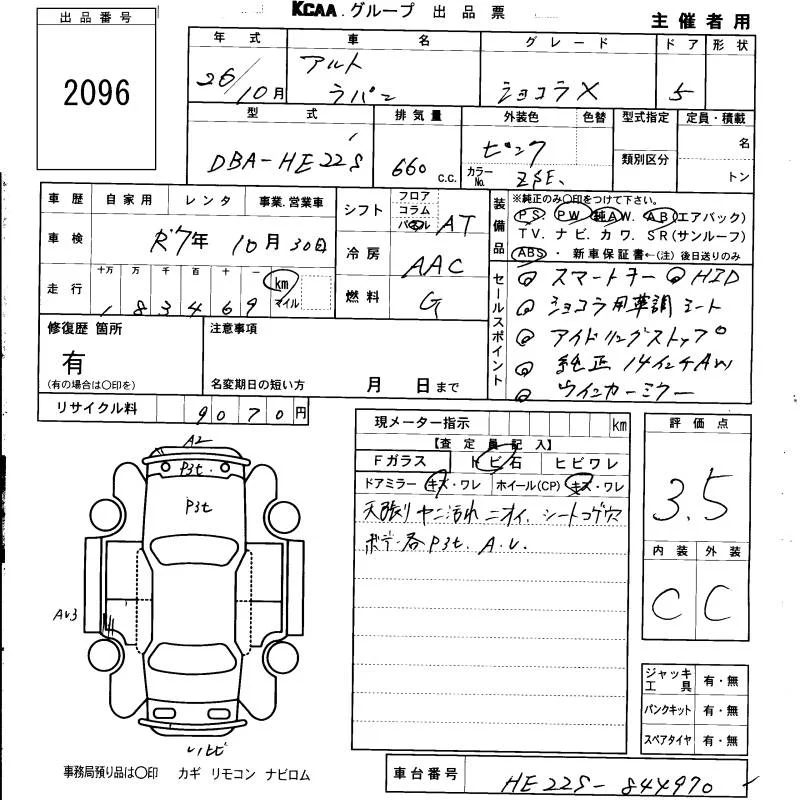 KCAA.グループ 出品票
主催者用
出品番号
2096
年式 車名 グレード ドア 形状
26/10月 アルト ラパン ショコラX 5
型式 排気量 外装色 色替 型式指定 定員・積載
DBA-HE22S 660 c.c. ピンク 類別区分 名
カラーNo. ZSE. トン
車歴 自家用 レンタ 事業.営業車
車検 R7年 10月 30日
走行 十万 万 千 百 十 一 km マイル
183469
シフト フロア コラム パネル AT
冷房 AAC
燃料 G
装備品
※純正のみ○印をつけて下さい。
P.S. P.W 純A.W. A.B(エアバック)
T.V. ナビ. カワ. S.R(サンルーフ)
ABS ・ 新車保証書←(注) 後日送りのみ
セールスポイント
◎ スマートキー ◎ HID
◎ ショコラ用革調シート
◎ アイドリングストップ
◎ 純正14インチAW
◎ ウインカーミラー
修復歴 箇所
有
(有の場合は○印を)
注意事項
名変期日の短い方 月 日まで
リサイクル料 9070円
現メーター指示 km
【査定員記入】
Fガラス トビ石 ヒビワレ
ドアミラー キズ・ワレ ホイール(CP) キズ・ワレ
天張りヤニ汚れ ニオイ. シートコゲ穴
ボデー各P3t. A.U.
評価点
3.5
内装 外装
C C
A2
P3t
P3t
AU3
ジャッキ工具 有・無
パンクキット 有・無
スペアタイヤ 有・無
事務局預り品は○印 カギ リモコン ナビロム
車台番号 HE22S-844970